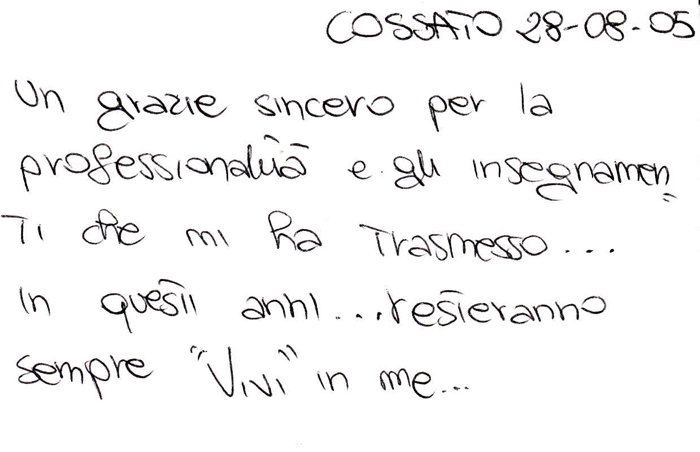 COSSATO 28-08-05
Un grazie sincero per la
professionalità e gli insegnamen
Ti che mi ha Trasmesso...
In questi anni...resteranno
sempre "Vivi" in me...